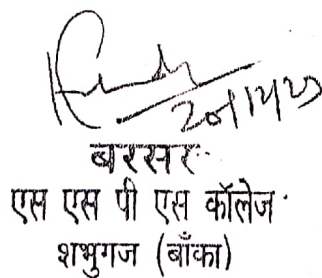 बरसर
एस एस पी एस कॉलेज
शभुगज (बाँका)